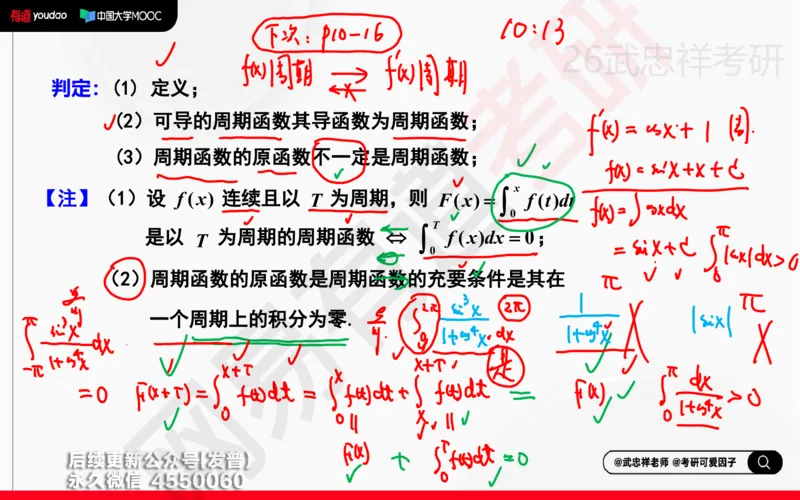 有道 youdao 中国大学MOOC
下次: P10-16
10:13
26武忠祥考研
f(x)周期 ⇄ f'(x)周期
判定：(1) 定义；
(2) 可导的周期函数其导函数为周期函数；
f'(x) = cosx + 1
(3) 周期函数的原函数不一定是周期函数；
f(x) = sinx + x + C
【注】(1) 设 f(x) 连续且以 T 为周期，则 F(x) = ∫₀ˣ f(t)dt
f(x) = ∫cosxdx
是以 T 为周期的周期函数 ⇔ ∫₀ᵀ f(x)dx = 0；
= sinx + C ∫₀^π |cosx|dx > 0
(2) 周期函数的原函数是周期函数的充要条件是其在
π
一个周期上的积分为零.
∫₀^2π sin³x/(1+cos⁴x) dx 2π
1/(1+cos⁴x)
|sinx| π
∫_-π^π sin³x/(1+cos²x) dx
= 0 F(x+T) = ∫₀^x+T f(t)dt = ∫₀ˣ f(t)dt + ∫ₓ^x+T f(t)dt = F(x)
∫₀^π dx/(1+cos⁴x) > 0
F(x) + ∫₀ᵀ f(t)dt = 0
后续更新公众号(发普)
永久微信 4550060
@武忠祥老师 @考研可爱因子
网易有道考研